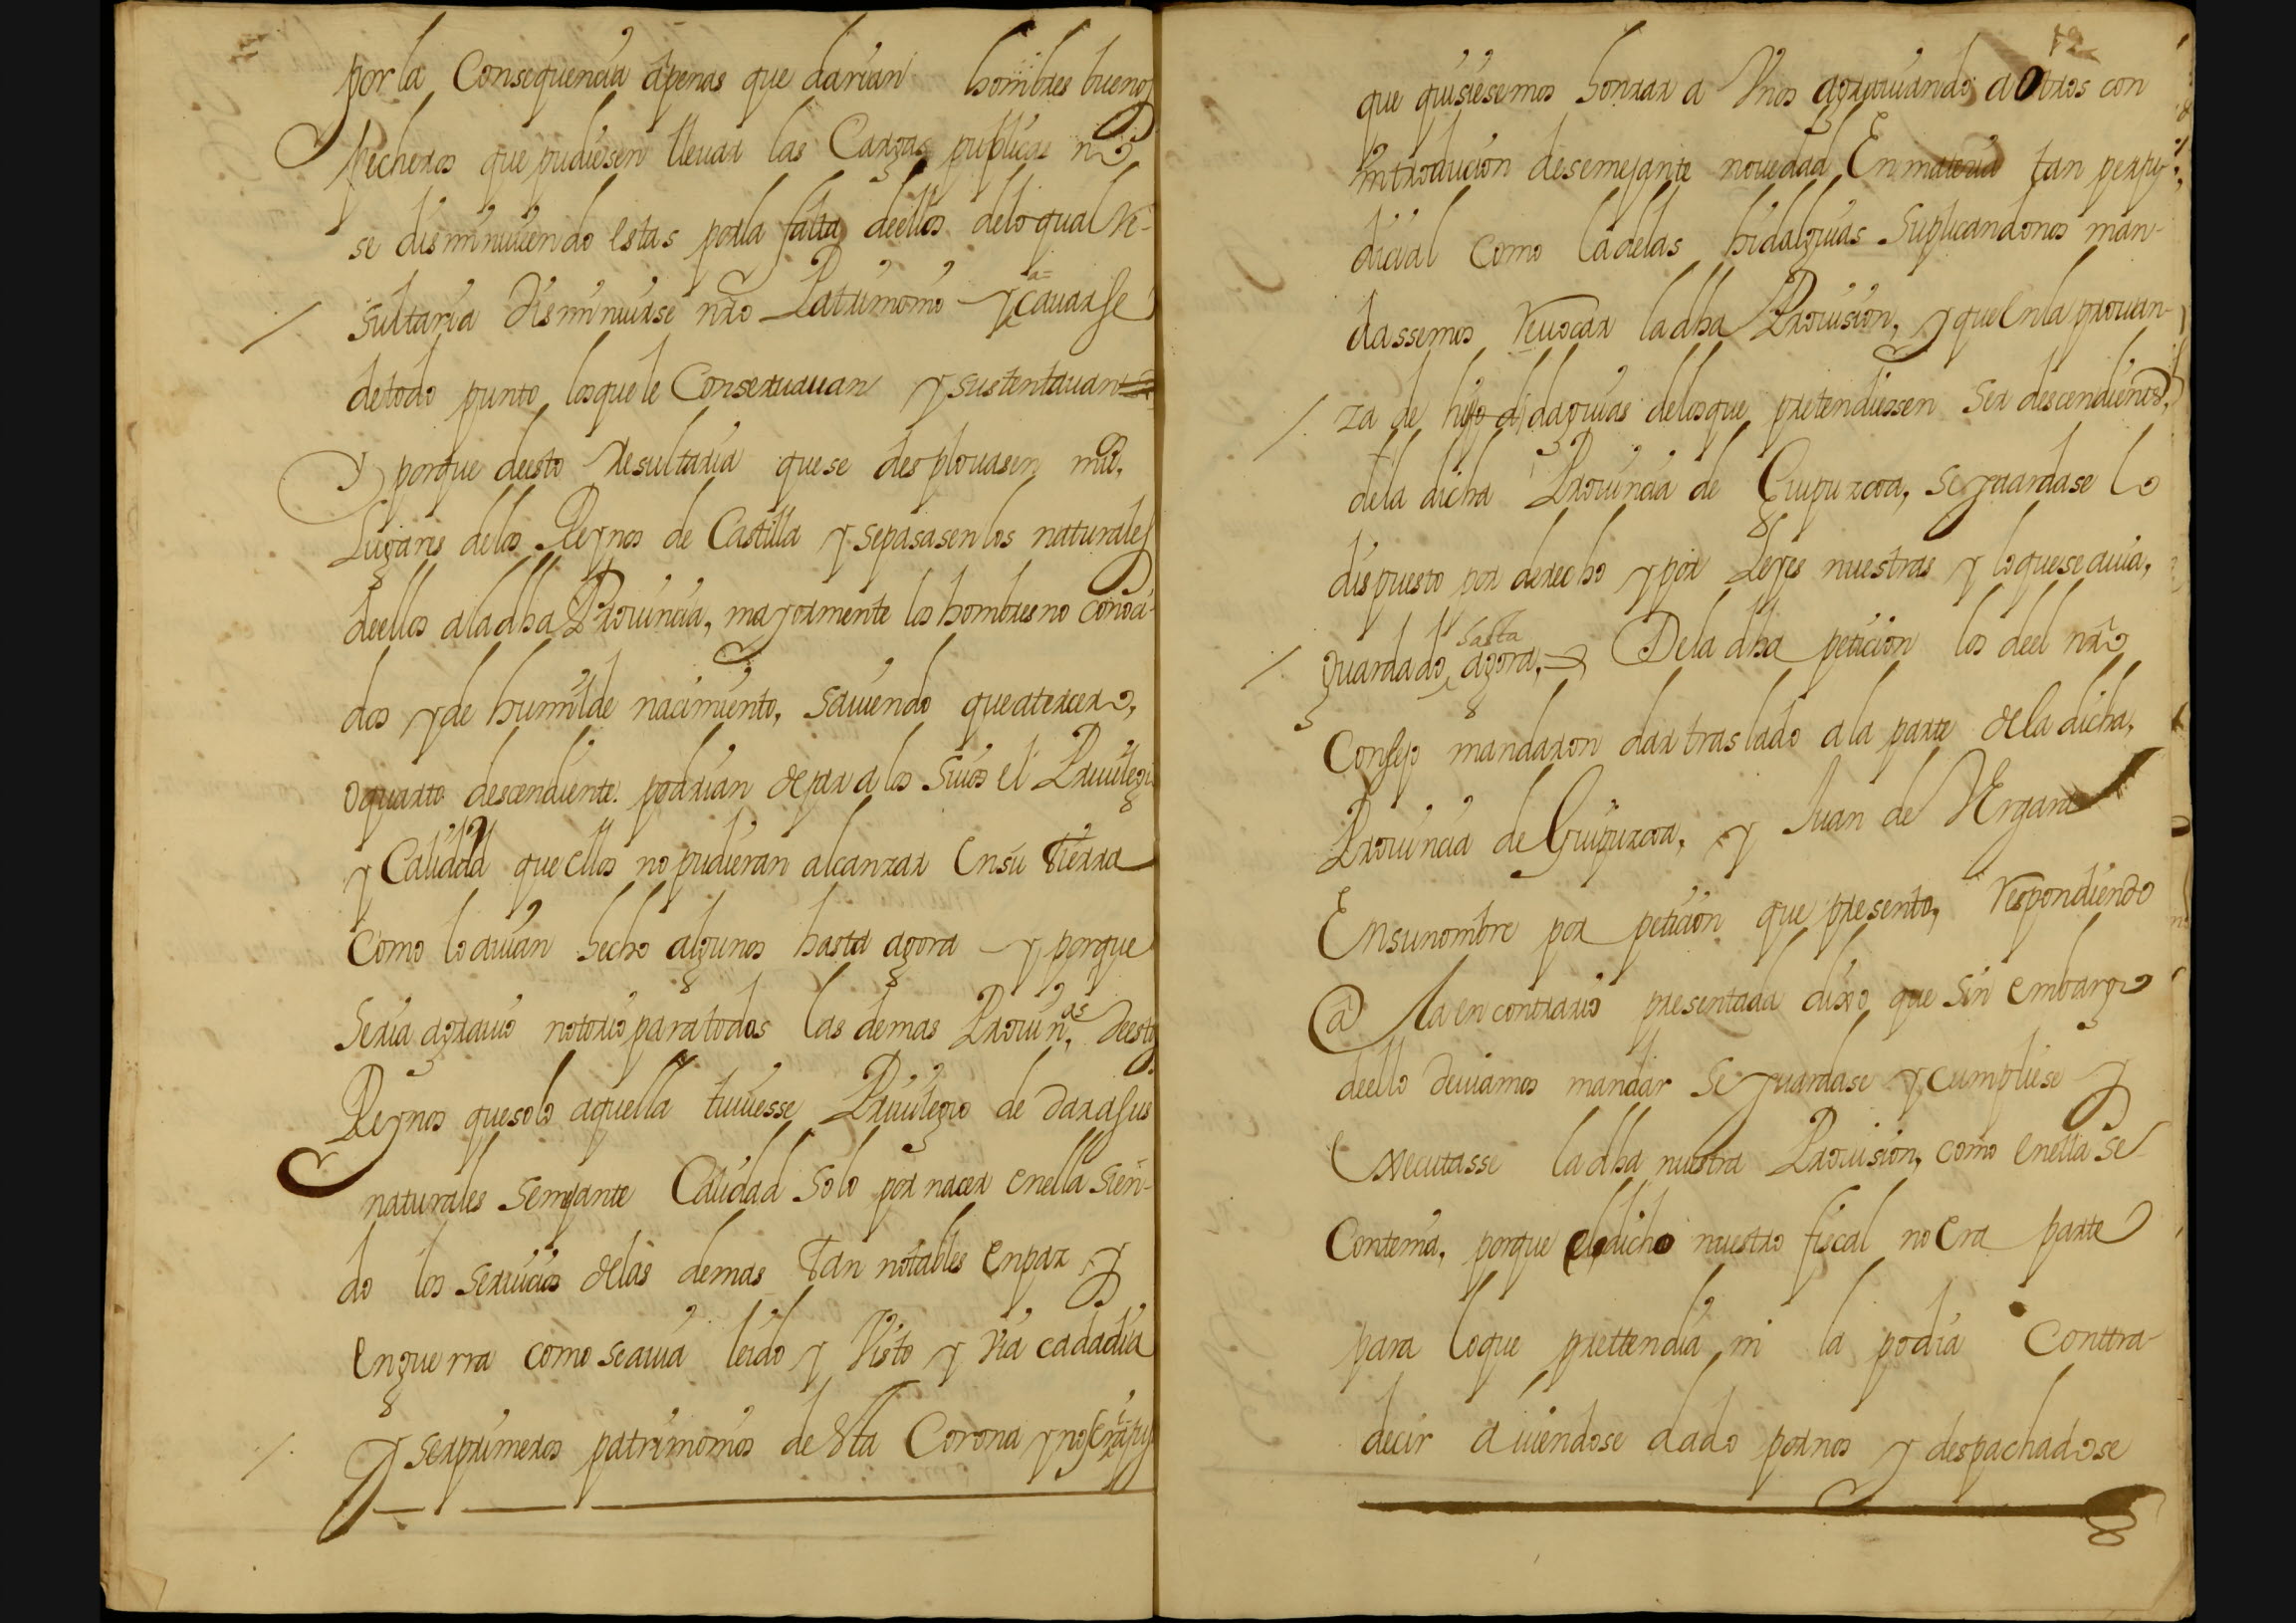 por la Consequencia apenas que darian hombres buenos
Pecheros que pudiesen lleuar las Cargas publicas nõ
se disminuiendo estas por la falta de ellos de lo qual Re-
sultaria disminuirse nrõ Patrimonio y acauarse
de todo punto los que le Conseruauan y sustentauan
Y porque de esto Resultaria que se desplouasen mũ.
Lugares de los Reynos de Castilla y se pasasen los naturales
de ellos a la dha Prouincia, mayormente los hombres no conoci-
dos y de humilde nacimiento, sauiendo que a tercero,
o quarto descendiente podrian dejar a los suios el Preuilegio
y Calidad que ellos no pudieran alcanzar en su tierra
Como lo auian hecho algunos hasta agora y porque
Seria agrauio notorio para todas las demas Prouin.as de estos
Reynos que solo aquella tuuiesse Preuilegio de dar a sus
naturales semejante Calidad solo por nacer en ella sien-
do los seruicios de las demas tan notables en paz y
en guerra como se auia leido y Visto y Via cada dia
Y ser primeros patrimonios de esta Corona y no ser
12
que quisiesemos honrar a Vnos agrauiando a Otros con
introducion de semejante nouedad En materia tan perjuy-
dicial como la de las hidalguias suplicandonos man-
dassemos Reuocar la dha Prouision, y que en la prouan-
za de hijo di dalguias de los que pretendiessen ser descendientes,
de la dicha Prouincia de Guipuzcoa, se guardase lo
dispuesto por derecho y por Leyes nuestras y lo que se auia,
hasta
guardado agora, De la dha peticion los de el nrõ
Consejo mandaron dar traslado a la parte de la dicha,
Prouincia de Guipuzcoa, y Juan de VErgara
En su nombre por peticion que presento, Respondiendo
a la en contrario presentada dixo que sin embargo
de ello deuiamos mandar se guardase y cumpliese y
Executasse la dha nuestra Prouision, como en ella se
Contenia, porque el dicho nuestro fiscal no Era parte
para lo que prettendia ni la podia Conttra-
decir auiendose dado por nos y despachadose